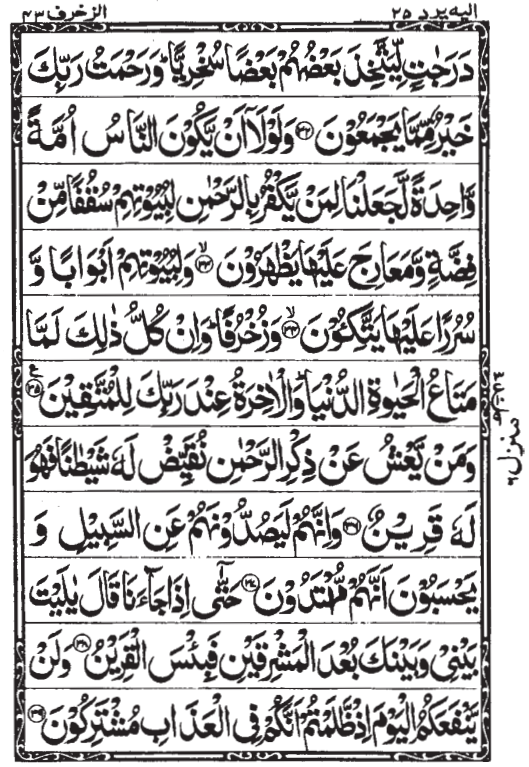 اليه يرد ٢٥
الزخرف ٤٣
دَرَجٰتٍ لِّيَتَّخِذَ بَعْضُهُمْ بَعْضًا سُخْرِيًّا ؕ وَرَحْمَتُ رَبِّكَ
خَيْرٌ مِّمَّا يَجْمَعُوْنَ ﴿۳۲﴾ وَلَوْلَاۤ اَنْ يَّكُوْنَ النَّاسُ اُمَّةً
وَّاحِدَةً لَّجَعَلْنَا لِمَنْ يَّكْفُرُ بِالرَّحْمٰنِ لِبُيُوْتِهِمْ سُقُفًا مِّنْ
فِضَّةٍ وَّمَعَارِجَ عَلَيْهَا يَظْهَرُوْنَ ﴿۳۳﴾ۙ وَلِبُيُوْتِهِمْ اَبْوَابًا وَّ
سُرُرًا عَلَيْهَا يَتَّكِئُوْنَ ﴿۳۴﴾ۙ وَزُخْرُفًا ؕ وَاِنْ كُلُّ ذٰلِكَ لَمَّا
مَتَاعُ الْحَيٰوةِ الدُّنْيَا ؕ وَالْاٰخِرَةُ عِنْدَ رَبِّكَ لِلْمُتَّقِيْنَ ﴿۳۵﴾ ع
وَمَنْ يَّعْشُ عَنْ ذِكْرِ الرَّحْمٰنِ نُقَيِّضْ لَهٗ شَيْطٰنًا فَهُوَ
لَهٗ قَرِيْنٌ ﴿۳۶﴾ وَاِنَّهُمْ لَيَصُدُّوْنَهُمْ عَنِ السَّبِيْلِ وَ
يَحْسَبُوْنَ اَنَّهُمْ مُّهْتَدُوْنَ ﴿۳۷﴾ حَتّٰۤى اِذَا جَآءَنَا قَالَ يٰلَيْتَ
بَيْنِيْ وَبَيْنَكَ بُعْدَ الْمَشْرِقَيْنِ فَبِئْسَ الْقَرِيْنُ ﴿۳۸﴾ وَلَنْ
يَّنْفَعَكُمُ الْيَوْمَ اِذْ ظَّلَمْتُمْ اَنَّكُمْ فِي الْعَذَابِ مُشْتَرِكُوْنَ ﴿۳۹﴾
منزل ٦